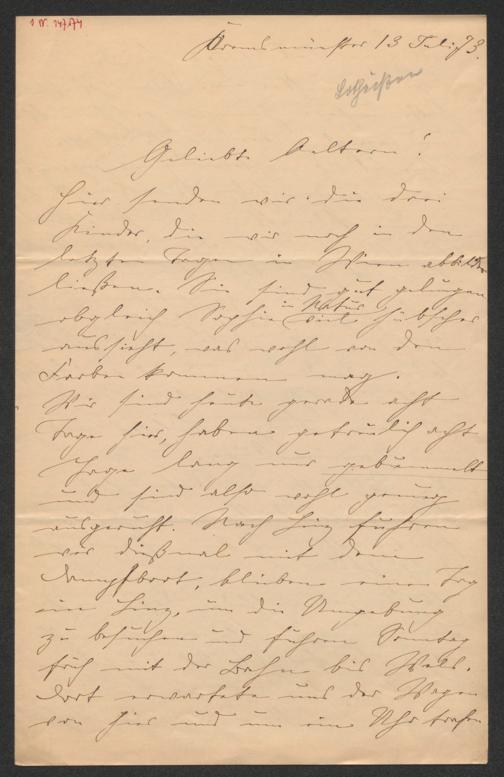 I. N. 247.674
Kremsmünster 13 Juli 73.
Lotheißen
Geliebte Aeltern!
Hier senden wir die drei
Kinder, die wir noch in den
letzten Tagen in Wien abbilden
ließen. Sie sind gut gelungen
obgleich Sophie in Natur viel hübscher
aussieht, was wohl von den
Farben kommen mag.
Wir sind heute gerade acht
Tage hier, haben getreulich acht
Tage lang nur gebummelt
und sind also wohl genug
ausgeruht. Nach Linz fuhren
wir dießmal mit dem
Dampfboot, blieben einen Tag
in Linz, um die Umgebung
zu besuchen und fuhren Sonntag
früh mit der Bahn bis Wels.
Dort erwartete uns der Wagen
von hier und um ein Uhr trafen